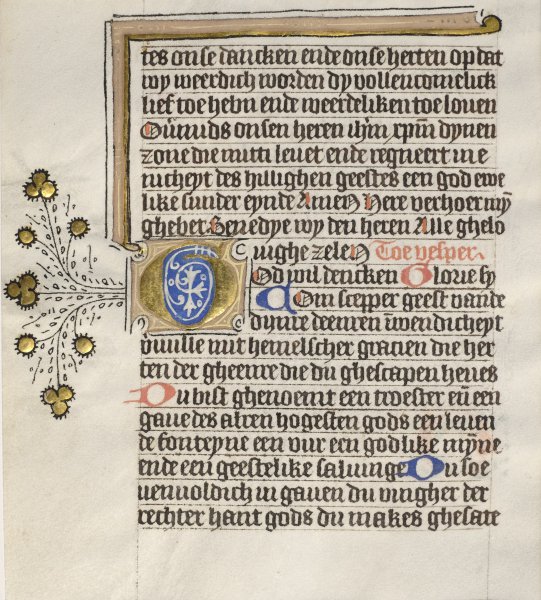 tes onse dancken ende onse herten op dat
wy weerdich worden dy vollencomelick
lief toe hebn ende weerdeliken toe louen
Ouermids onsen heren ihm xpm dynen
zone die mitti leuet ende regneert in e
nicheyt des hillighen geestes een god ewe
like sunder eynde Amen Here verhoer myn
ghebet Benedye wy den heren Alle ghelo
uighe zelen Toe vesper
God wil dencken Glorie sy
Com scepper geest vande
dynre deenren vwendicheyt
vnulle mit hemelscher gracien die her
ten der gheenre die du ghescapen heues
Du bist ghenoemt een troester een
gaue des alren hogesten gods een leuen
de fonteyne een vur een godlike mynne
ende een geestelike saluinge Du soe
uenuoldich in gauen du vingher der
rechter hant gods du makes ghesate